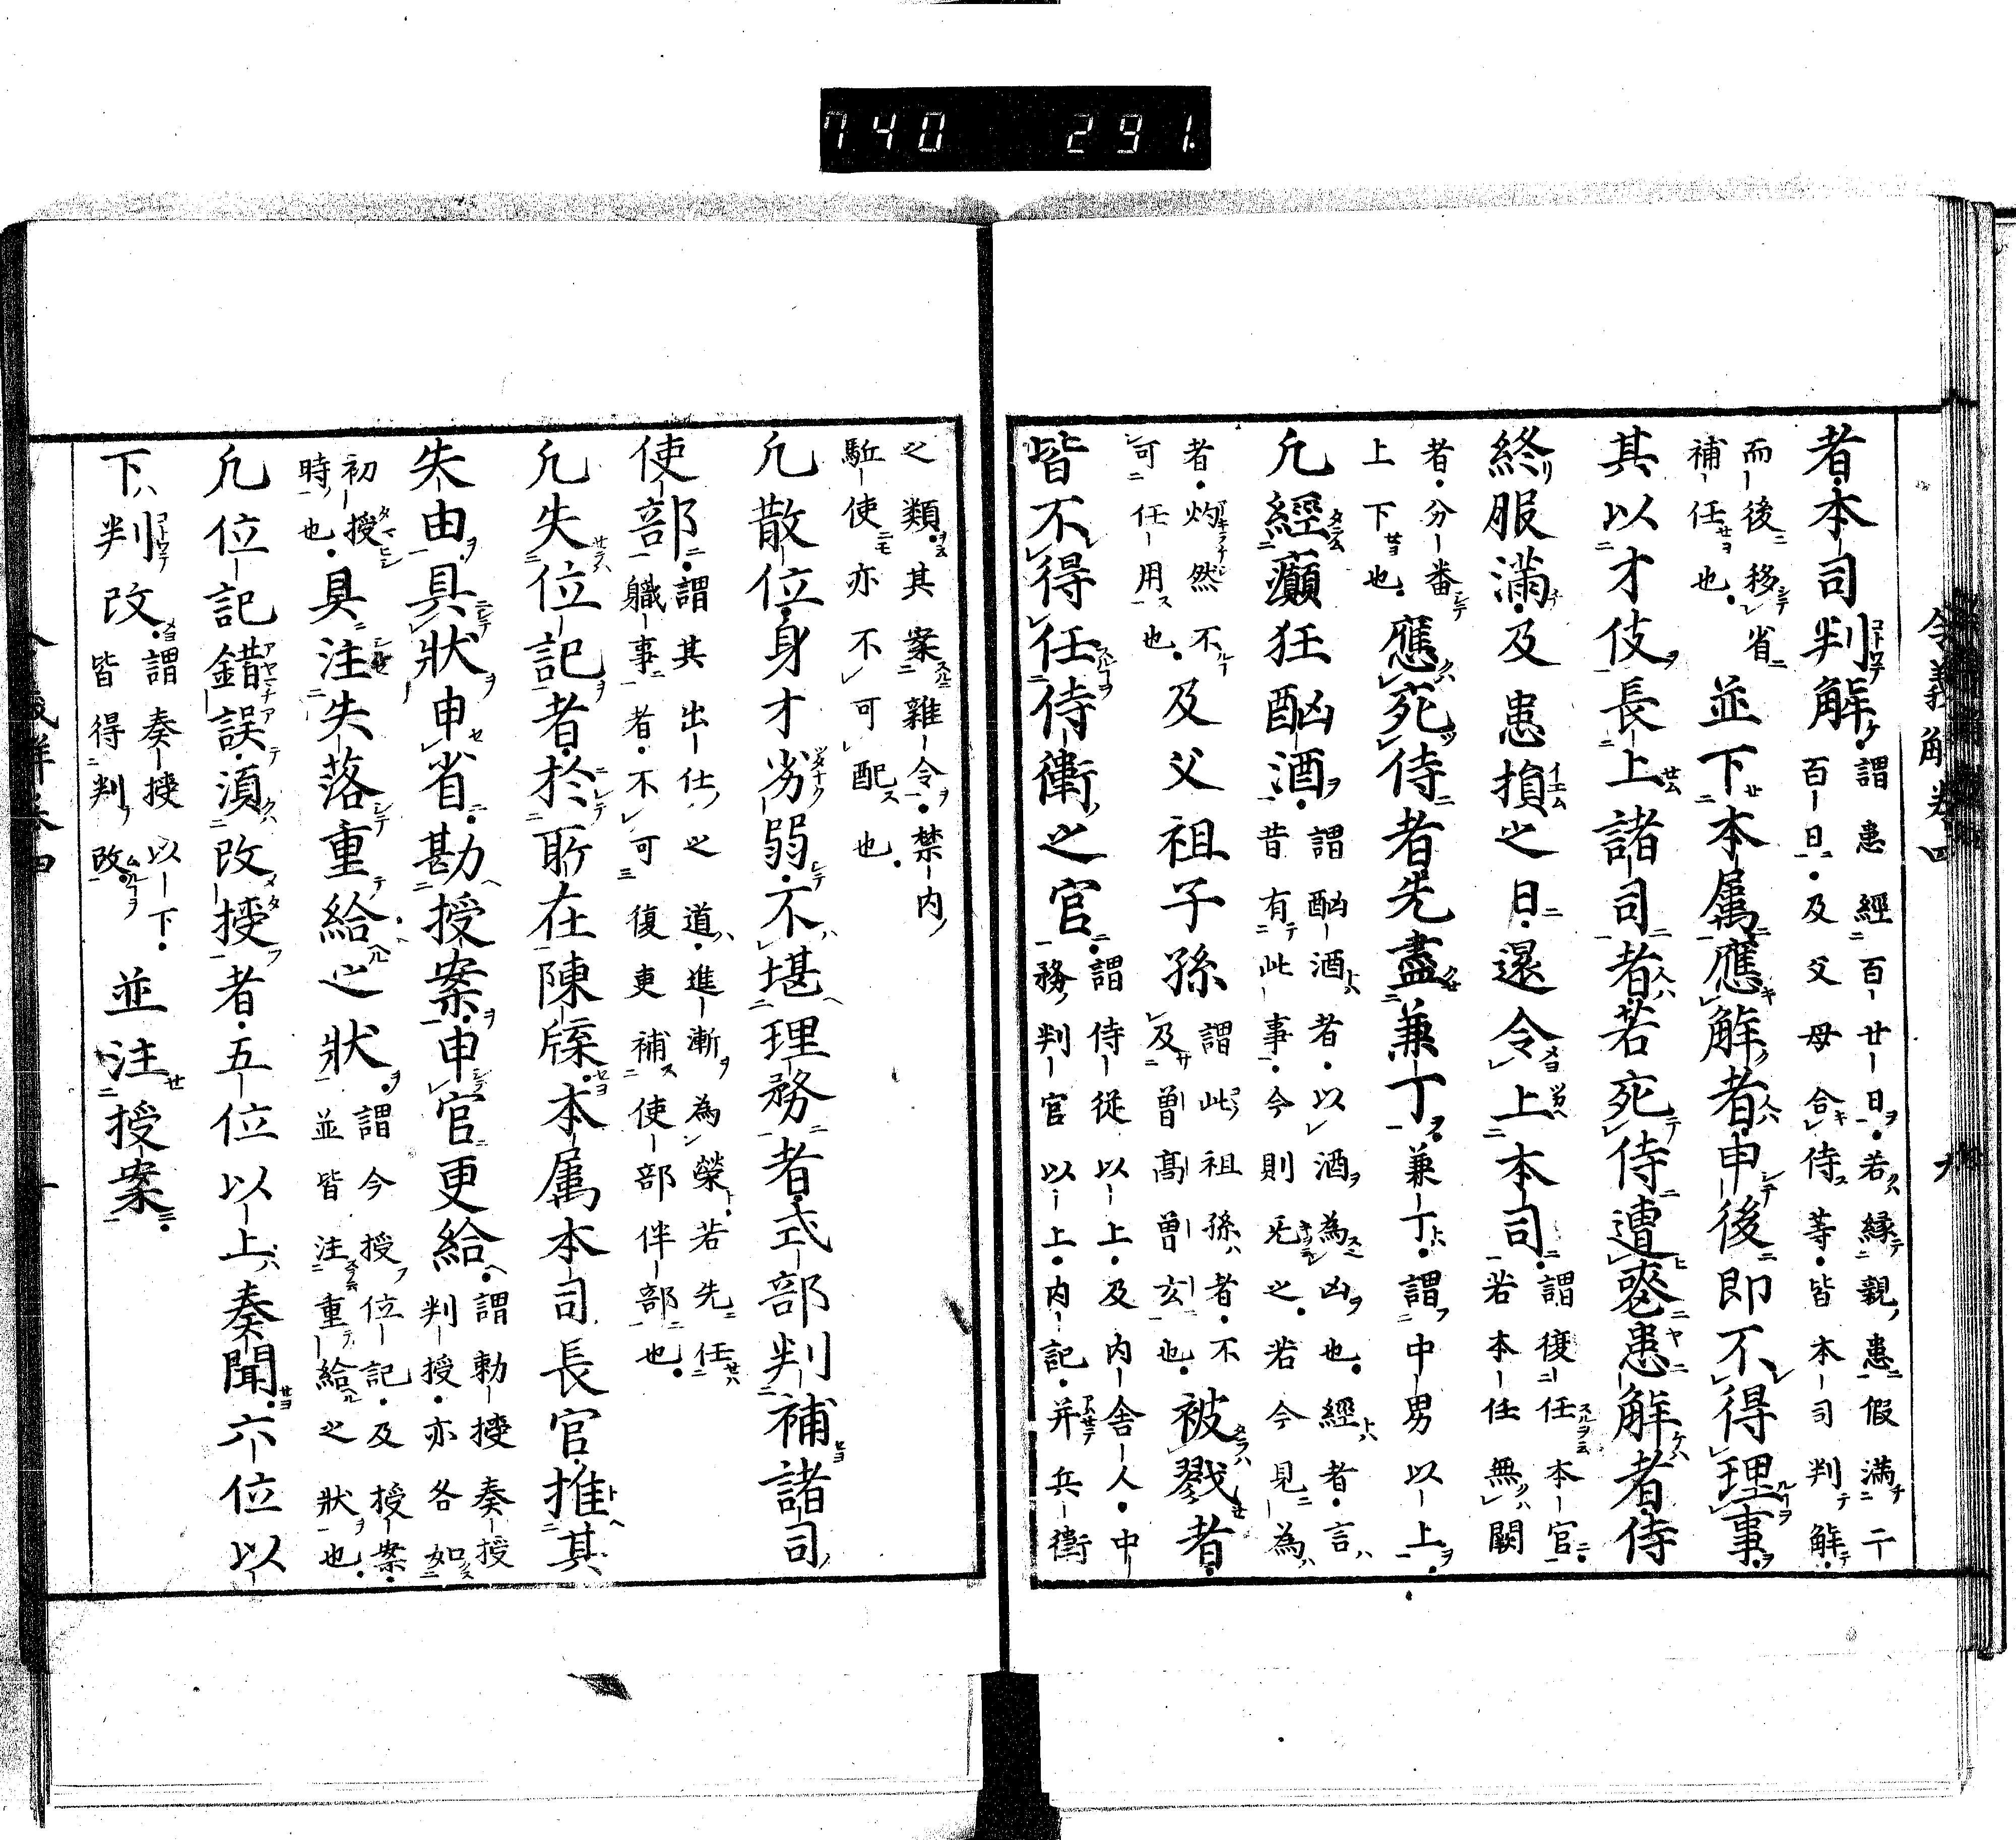 740 291
令義解卷四
者本司判解謂患經百廿日若縁親患假滿二百日及父母合侍等皆本司判解
而後移省補任也並下本属應解者申後即不得理事
其以才伎長上諸司者若死侍遭喪患解者侍
終服滿及患損之日還令上本司謂復任本官若本任無闕
者分番上下也應死侍者先盡兼丁兼丁謂中男以上
凡經癲狂酗酒謂酗酒者以酒為凶也經者言昔有此事今則旡之若今見為
者灼然不可任用也及父祖子孫謂此祖孫者不及曽高曽玄也被戮者
皆不得任侍衛之官謂侍從以上及内舎人中務判官以上内記并兵衛
之類其案雜令禁内駈使亦不可配也
凡散位身才劣弱不堪理務者式部判補諸司
使部謂其出仕之道進漸為榮若先任職事者不可復更補使部伴部也
凡失位記者於所在陳牒本属本司長官推其
失由具狀申省勘授案申官更給謂勅授奏授判授亦各如
初授時也具注失落重給之狀謂今授位記及授案並皆注重給之狀也
凡位記錯誤湏改授者五位以上奏聞六位以
下判改謂奏授以下皆得判改並注授案